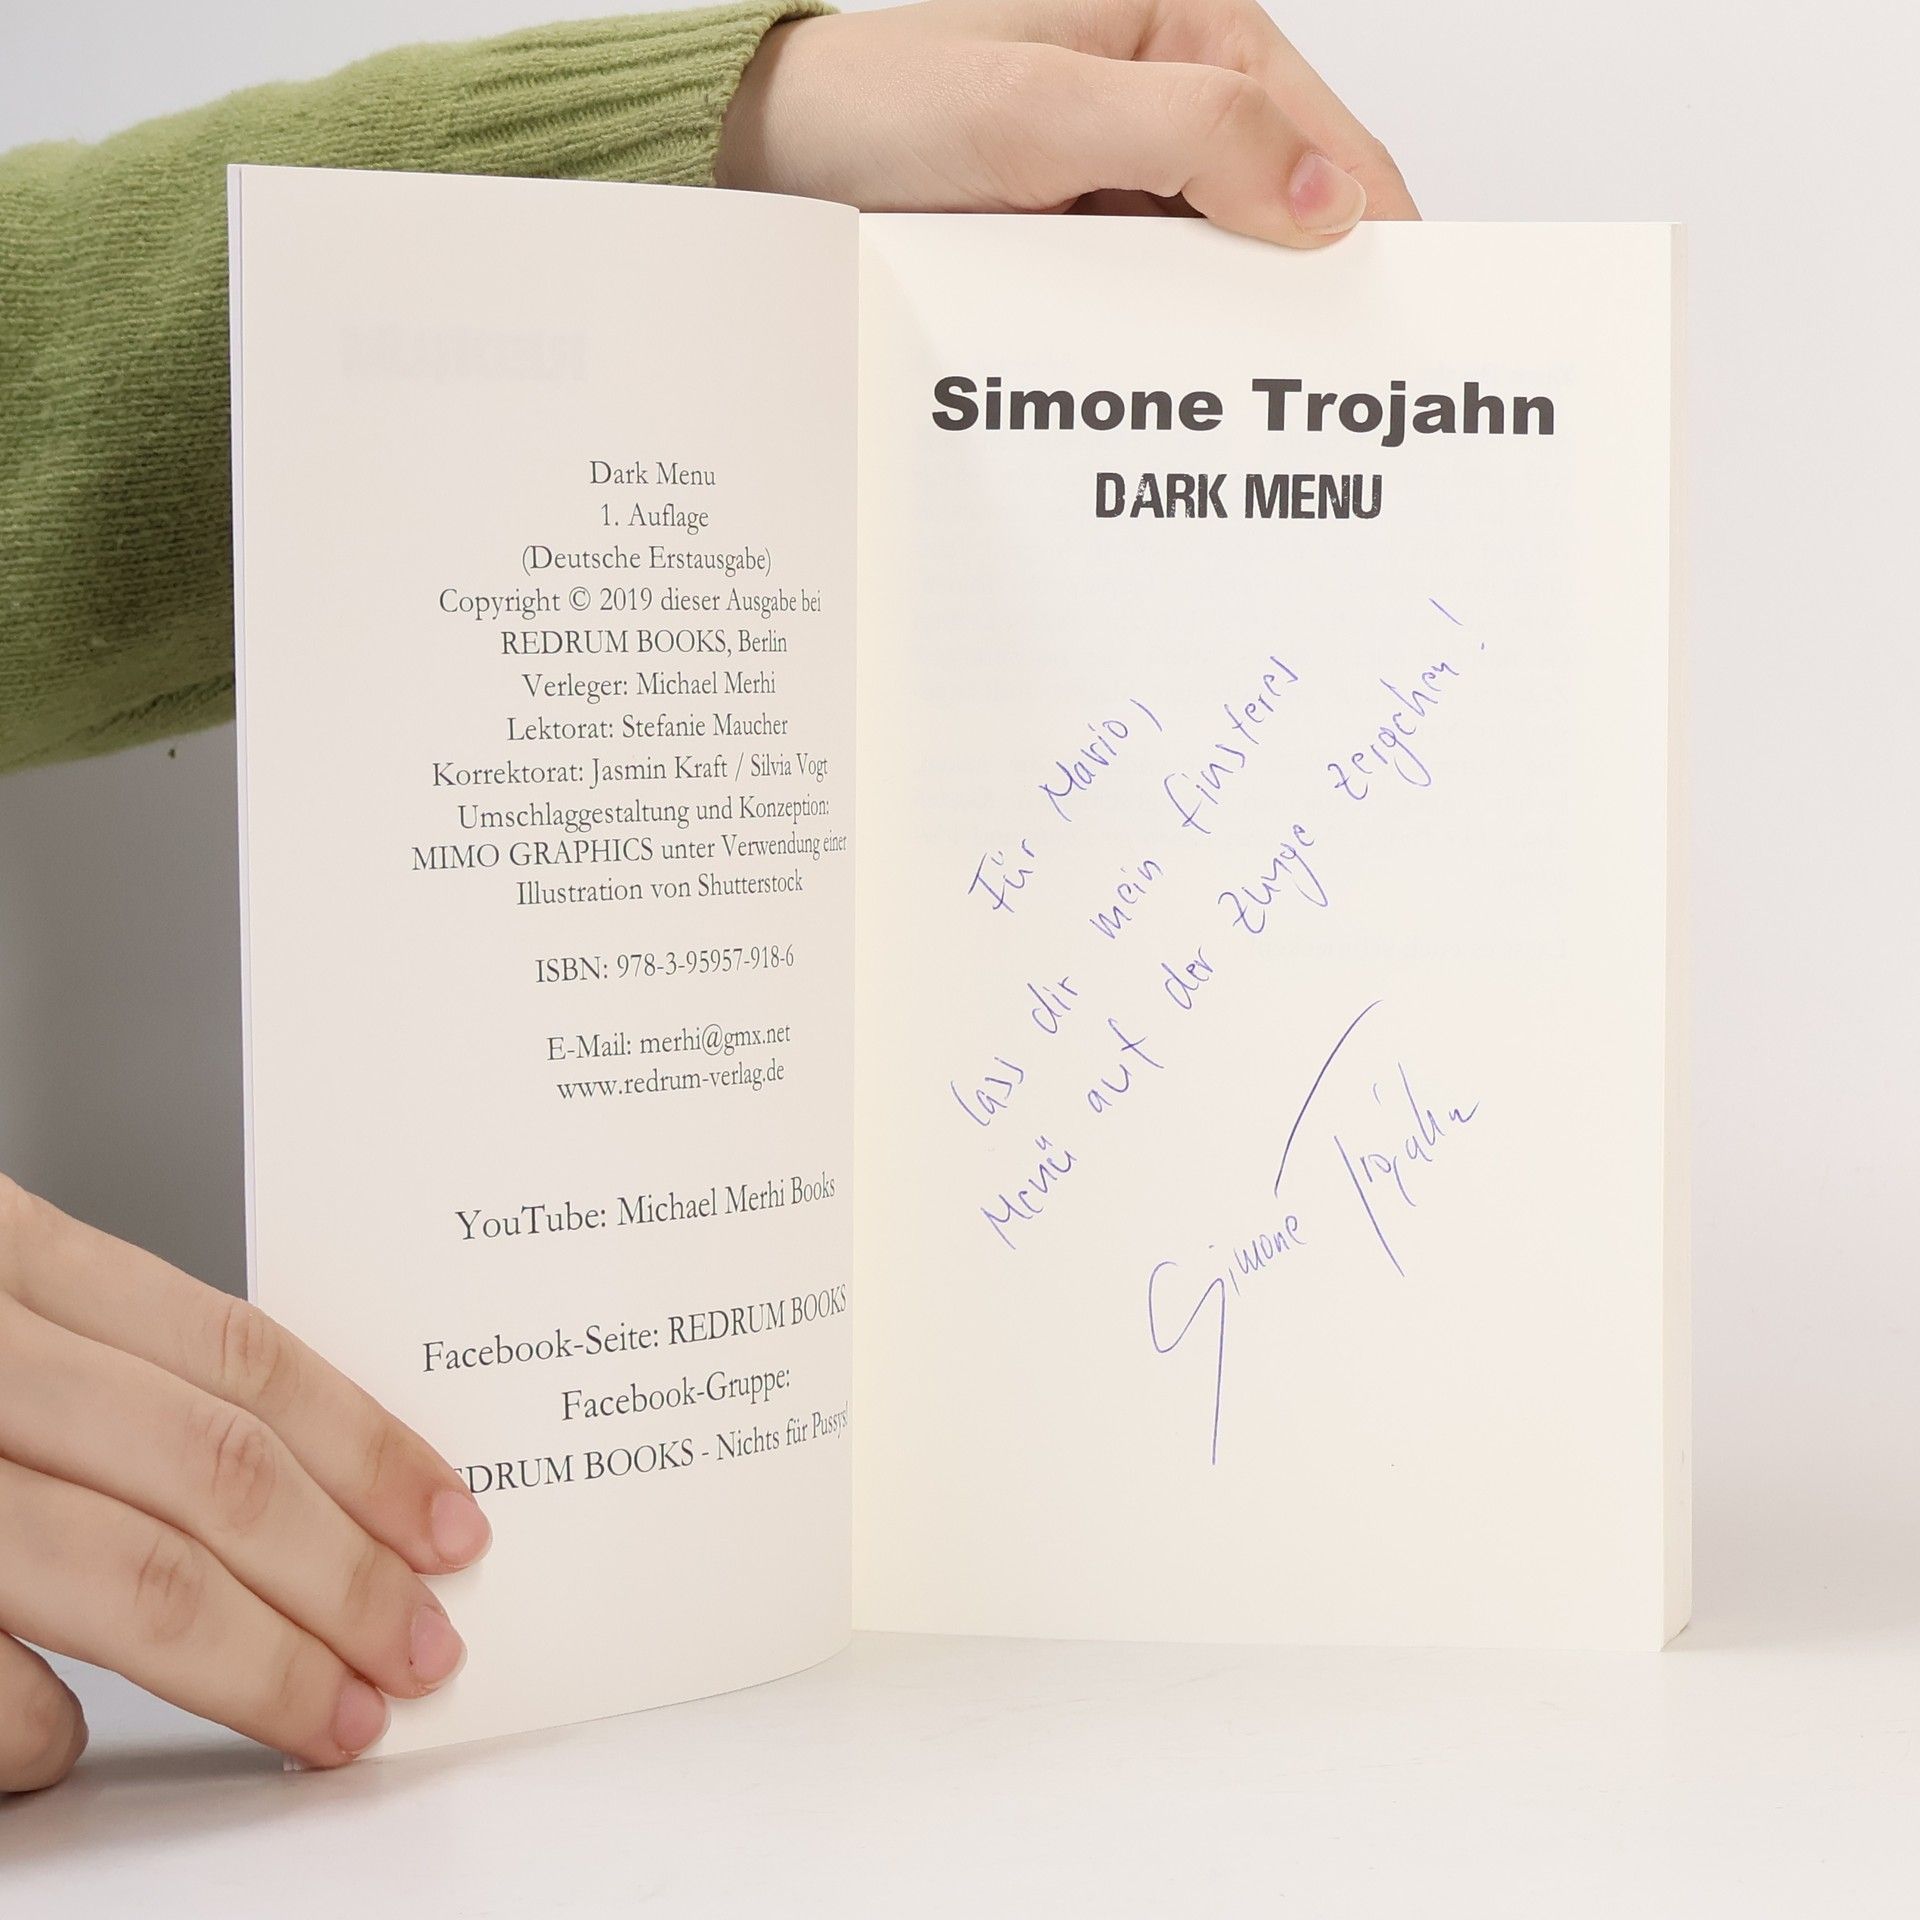 Dark Menu
1. Auflage
(Deutsche Erstausgabe)
Copyright © 2019 dieser Ausgabe bei
REDRUM BOOKS, Berlin
Verleger: Michael Merhi
Lektorat: Stefanie Maucher
Korrektorat: Jasmin Kraft / Silvia Vogt
Umschlaggestaltung und Konzeption:
MIMO GRAPHICS unter Verwendung einer
Illustration von Shutterstock
ISBN: 978-3-95957-918-6
E-Mail: merhi@gmx.net
www.redrum-verlag.de
YouTube: Michael Merhi Books
Facebook-Seite: REDRUM BOOKS
Facebook-Gruppe:
EDRUM BOOKS - Nichts für Pussys!
Simone Trojahn
DARK MENU
Für Mario,
lass dir mein finsteres
Menü auf der Zunge zergehen!
Simone Trojahn